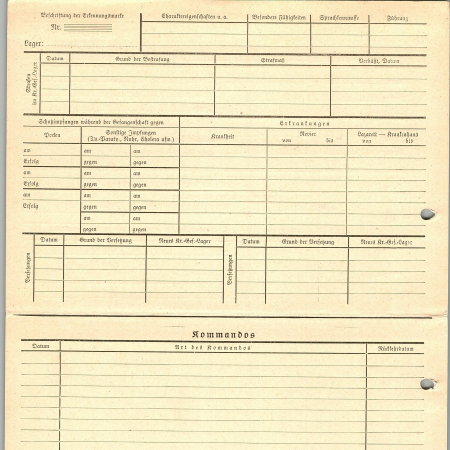 Beschriftung der Erkennungsmarke
Nr.
Lager:
Charaktereigenschaften u. a.
Besondere Fähigkeiten
Sprachkenntnisse
Führung
Strafen im Kr.-Gef.-Lager
Datum
Grund der Bestrafung
Strafmaß
Verbüßt, Datum
Schutzimpfungen während der Gefangenschaft gegen
Erkrankungen
Pocken
Sonstige Impfungen
(Ty.-Paraty., Ruhr, Cholera usw.)
Krankheit
Revier
von bis
Lazarett — Krankenhaus
von bis
am am am
Erfolg gegen gegen
am am am
Erfolg gegen gegen
am am am
Erfolg gegen gegen
am am
gegen gegen
Versetzungen
Datum
Grund der Versetzung
Neues Kr.-Gef.-Lager
Versetzungen
Datum
Grund der Versetzung
Neues Kr.-Gef.-Lager
Kommandos
Datum
Art des Kommandos
Rückkehrdatum